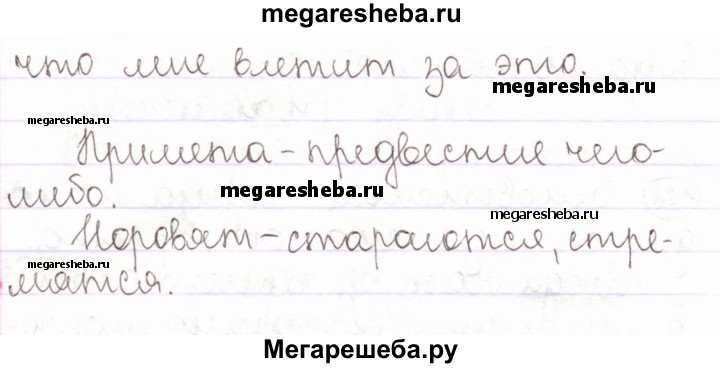 megaresheba.ru
что мне влетит за это.
megaresheba.ru
megaresheba.ru
Примета - предвестие чего-
либо.
megaresheba.ru
megaresheba.ru
Норовят - стараются, стре-
мятся.
Мегарешеба.ру